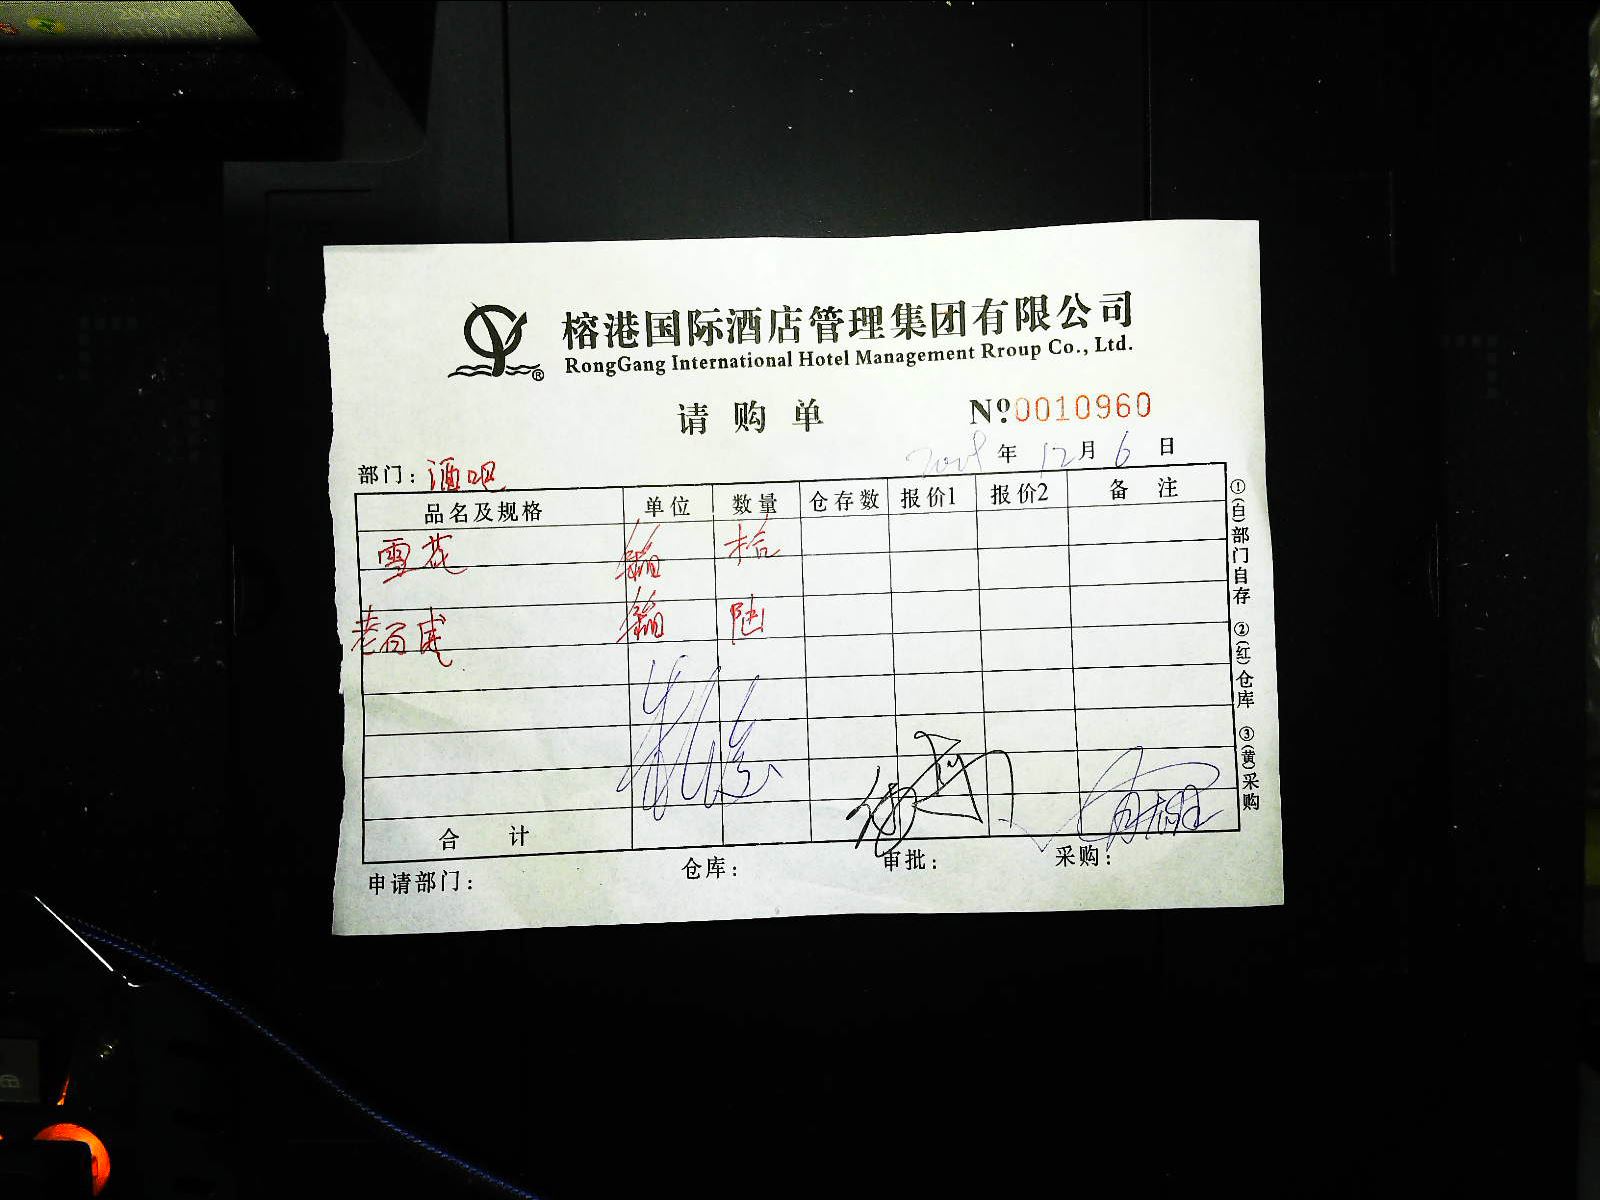 榕港国际酒店管理集团有限公司
RongGang International Hotel Management Rroup Co., Ltd.
请购单 Nº0010960
年 12月 6日
部门：酒吧
品名及规格 单位 数量 仓存数 报价1 报价2 备注
雪花 箱 拾
老百威 箱 陆
合计
申请部门： 仓库： 审批： 采购：
①(白)部门自存 ②(红)仓库 ③(黄)采购